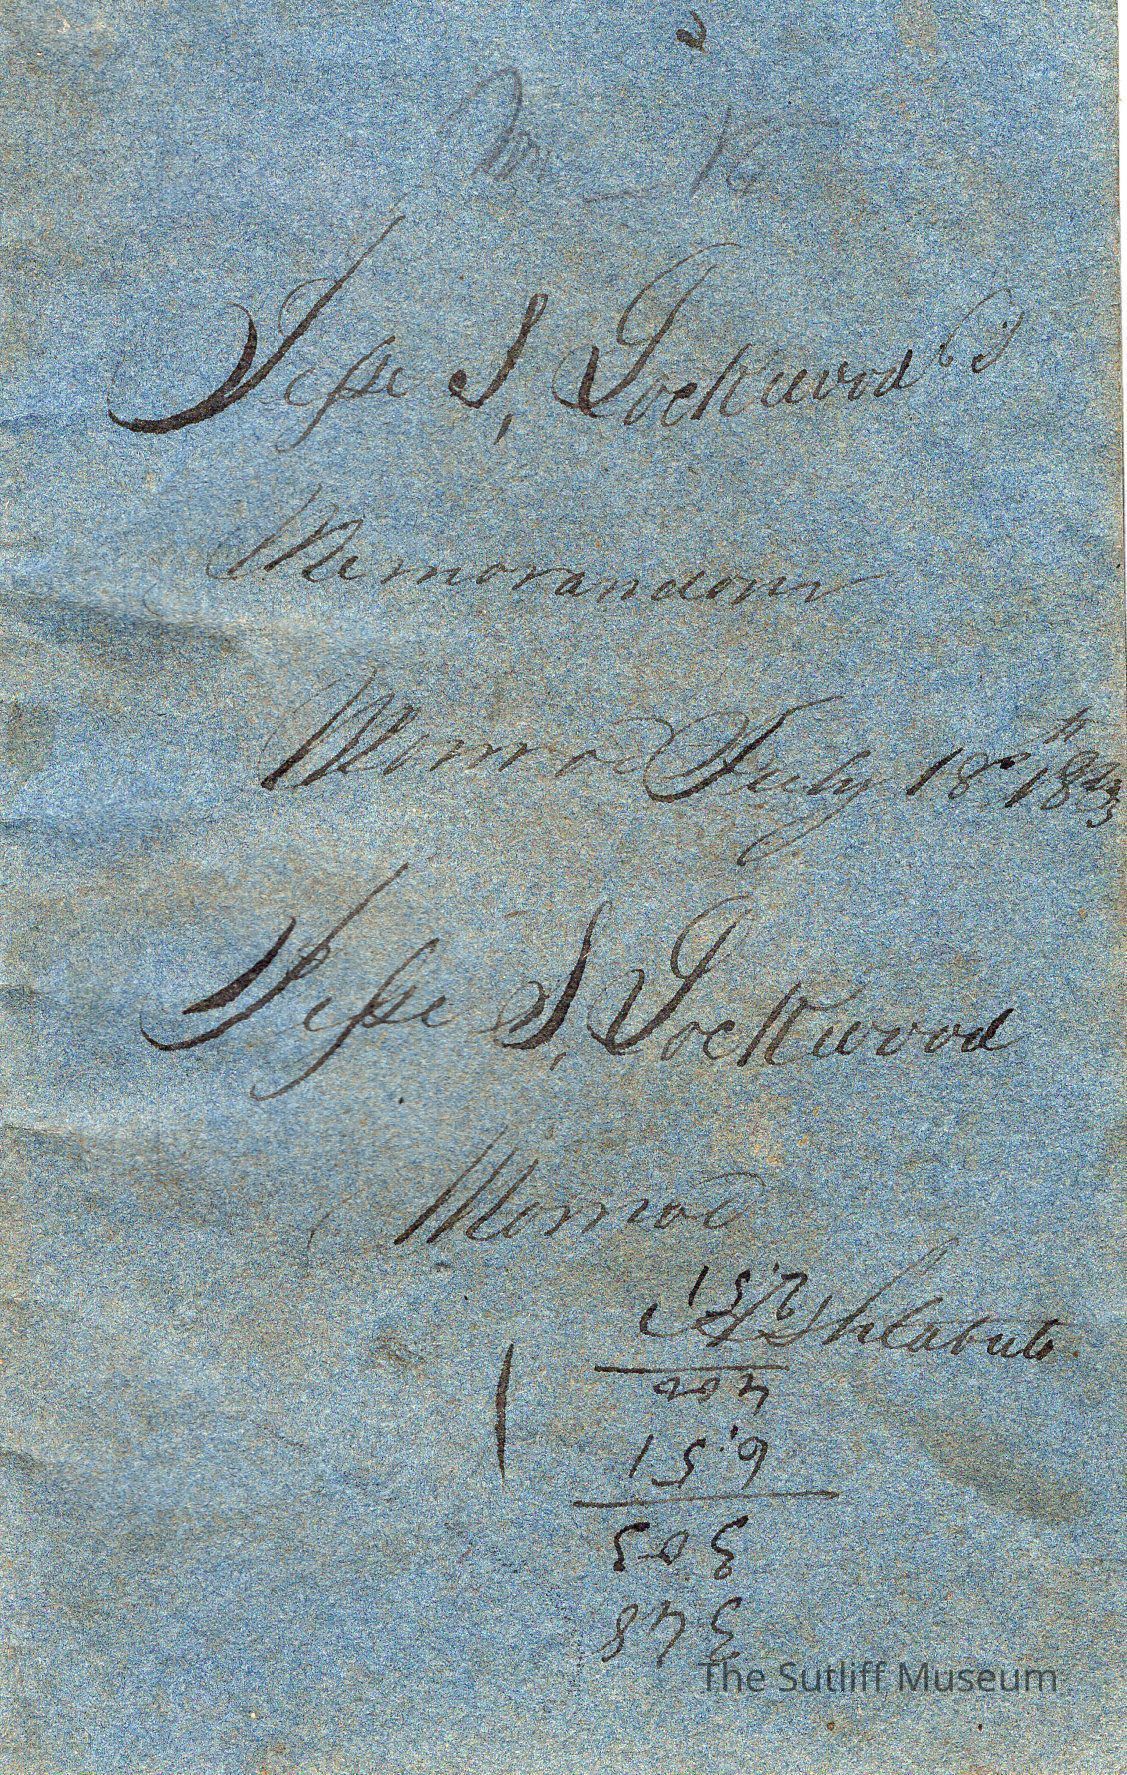 Jeſse S, Lockwood's
Memorandom
Monroe July 18th 1843
Jeſse S, Lockwood
Monroe
2.51
Ashtabula
400
6.51
303
348
The Sutliff Museum